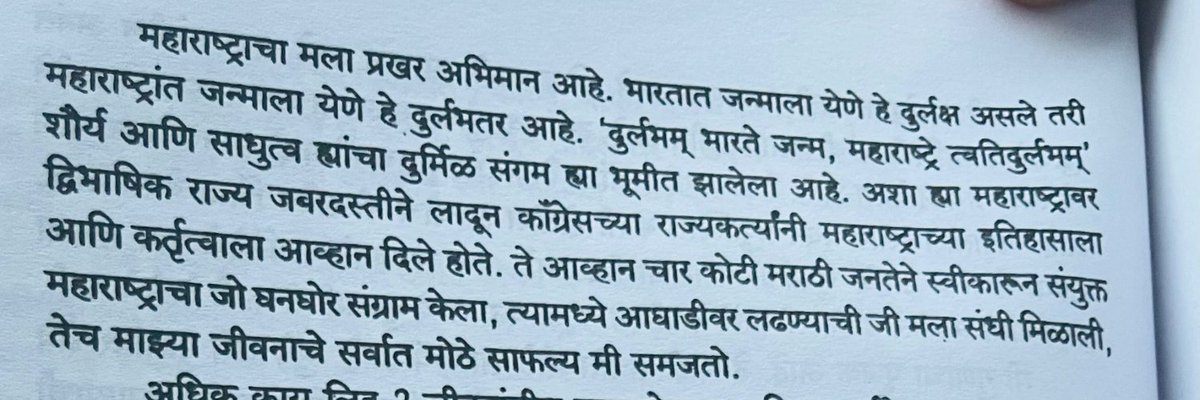 महाराष्ट्राचा मला प्रखर अभिमान आहे. भारतात जन्माला येणे हे दुर्लक्ष असले तरी
महाराष्ट्रांत जन्माला येणे हे दुर्लभतर आहे. 'दुर्लभम् भारते जन्म, महाराष्ट्रे त्वतिदुर्लभम्'
शौर्य आणि साधुत्व ह्यांचा दुर्मिळ संगम ह्या भूमीत झालेला आहे. अशा ह्या महाराष्ट्रावर
द्विभाषिक राज्य जबरदस्तीने लादून काँग्रेसच्या राज्यकर्त्यांनी महाराष्ट्राच्या इतिहासाला
आणि कर्तृत्वाला आव्हान दिले होते. ते आव्हान चार कोटी मराठी जनतेने स्वीकारून संयुक्त
महाराष्ट्राचा जो घनघोर संग्राम केला, त्यामध्ये आघाडीवर लढण्याची जी मला संधी मिळाली,
तेच माझ्या जीवनाचे सर्वात मोठे साफल्य मी समजतो.
अधिक काय